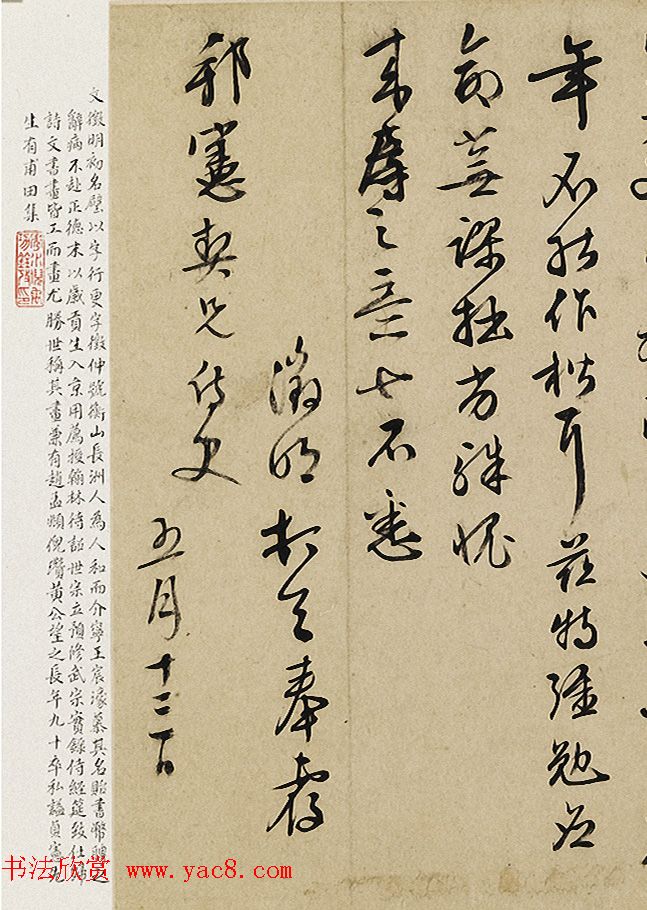 年不能作楷耳茲特强勉应
命芜謬拙劣殊愧
来辱之意也不悉
徵明頓首奉覆
邦憲契兄侍史
五月十三日
文徵明初名壁以字行更字徵仲號衡山長洲人為人和而介寧王宸濠慕其名貽書幣聘之
辭病不赴正德末以歲貢生入京用薦授翰林待詔世宗立預修武宗實錄侍經筵致仕歸
詩文書畫皆工而畫尤勝世稱其畫兼有趙孟頫倪瓚黃公望之長年九十卒私謚貞憲先
生有甫田集
书法欣赏 www.yac8.com